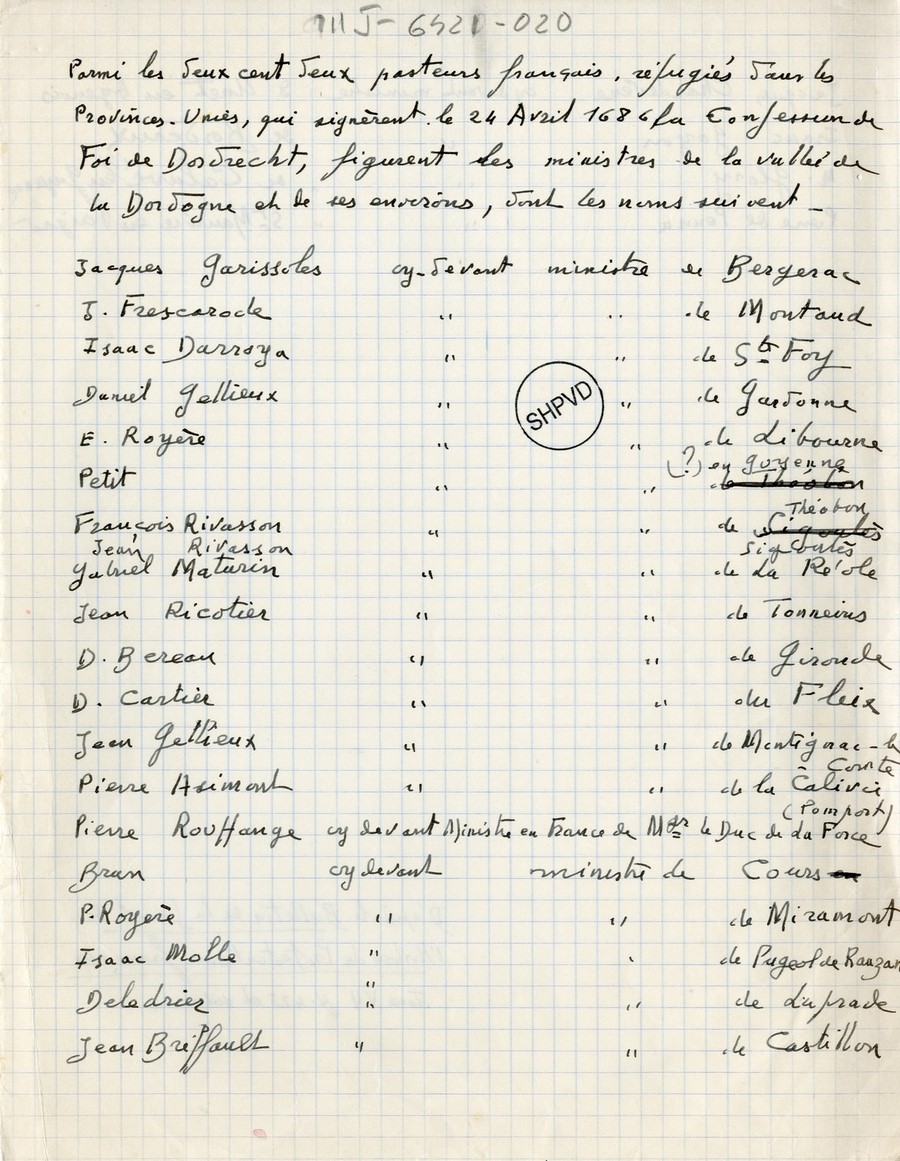 III J- 6521-020
Parmi les deux cent deux pasteurs français, réfugiés dans les
Provinces-Unies, qui signèrent le 24 Avril 1686 la Confession de
Foi de Dordrecht, figurent les ministres de la vallée de
la Dordogne et de ses environs, dont les noms suivent _
Jacques Garissoles cy-devant ministre de Bergerac
J. Frescarode " " de Montaud
Isaac Darroya " " de Ste Foy
Daniel Gellieux " " de Gardonne
SHPVD
E. Royère " " de Libourne
(?) en guyenne
Petit " " de Théobon
Théobon
François Rivasson " " de Sigoulès
Jean Rivasson Sigoulès
Gabriel Maturin " " de La Réole
Jean Ricotier " " de Tonneins
D. Bereau " " de Gironde
D. Cartier " " du Fleix
Jean Gellieux " " de Montignac-le
- Comte
Pierre Asimont " " de la Calivie
(Pomport)
Pierre Rouffange cy devant Ministre en France de Mgr le Duc de La Force
Brun cy devant ministre de Cours en
P. Royère " " de Miramont
Isaac Molle " " de Pujeol de Rauzan
"
Deledrier " " de Laprade
Jean Briffault " " de Castillon